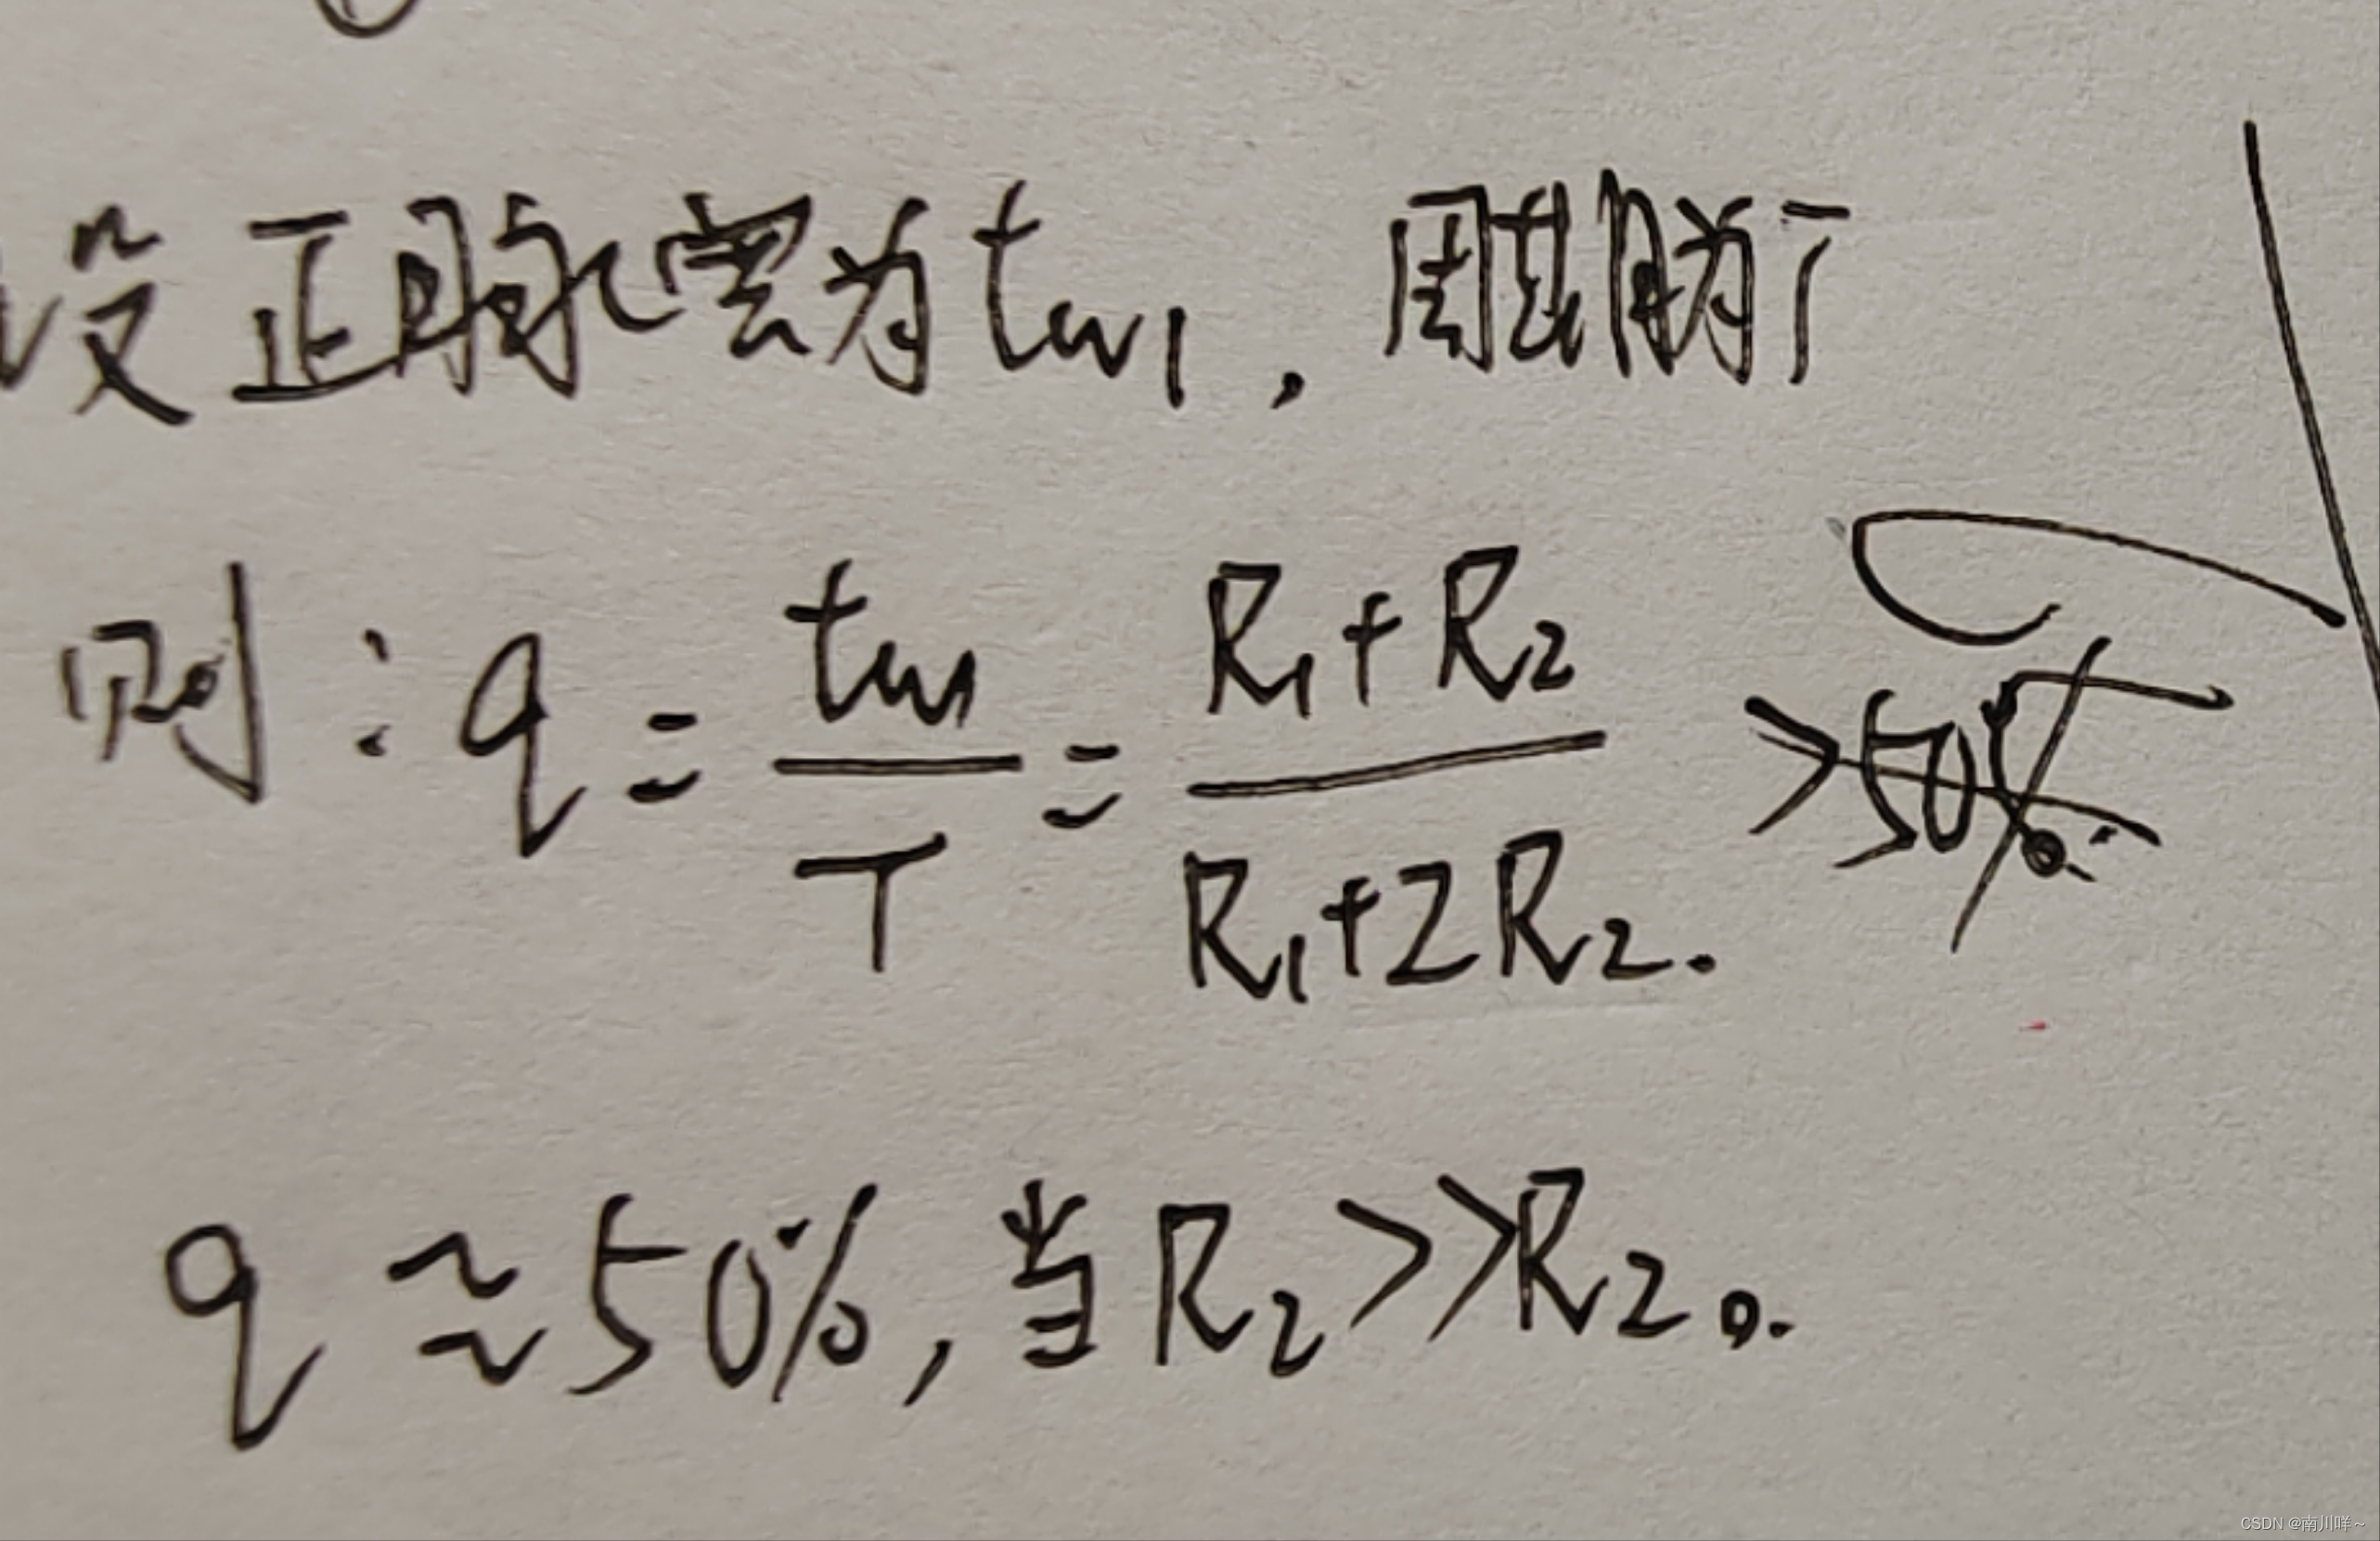 设正脉宽为tw1,周期为T
则:q = tw1/T = (R1+R2)/(R1+2R2). >50%
q ≈ 50%,当R2>>R2。
CSDN @南川咩~